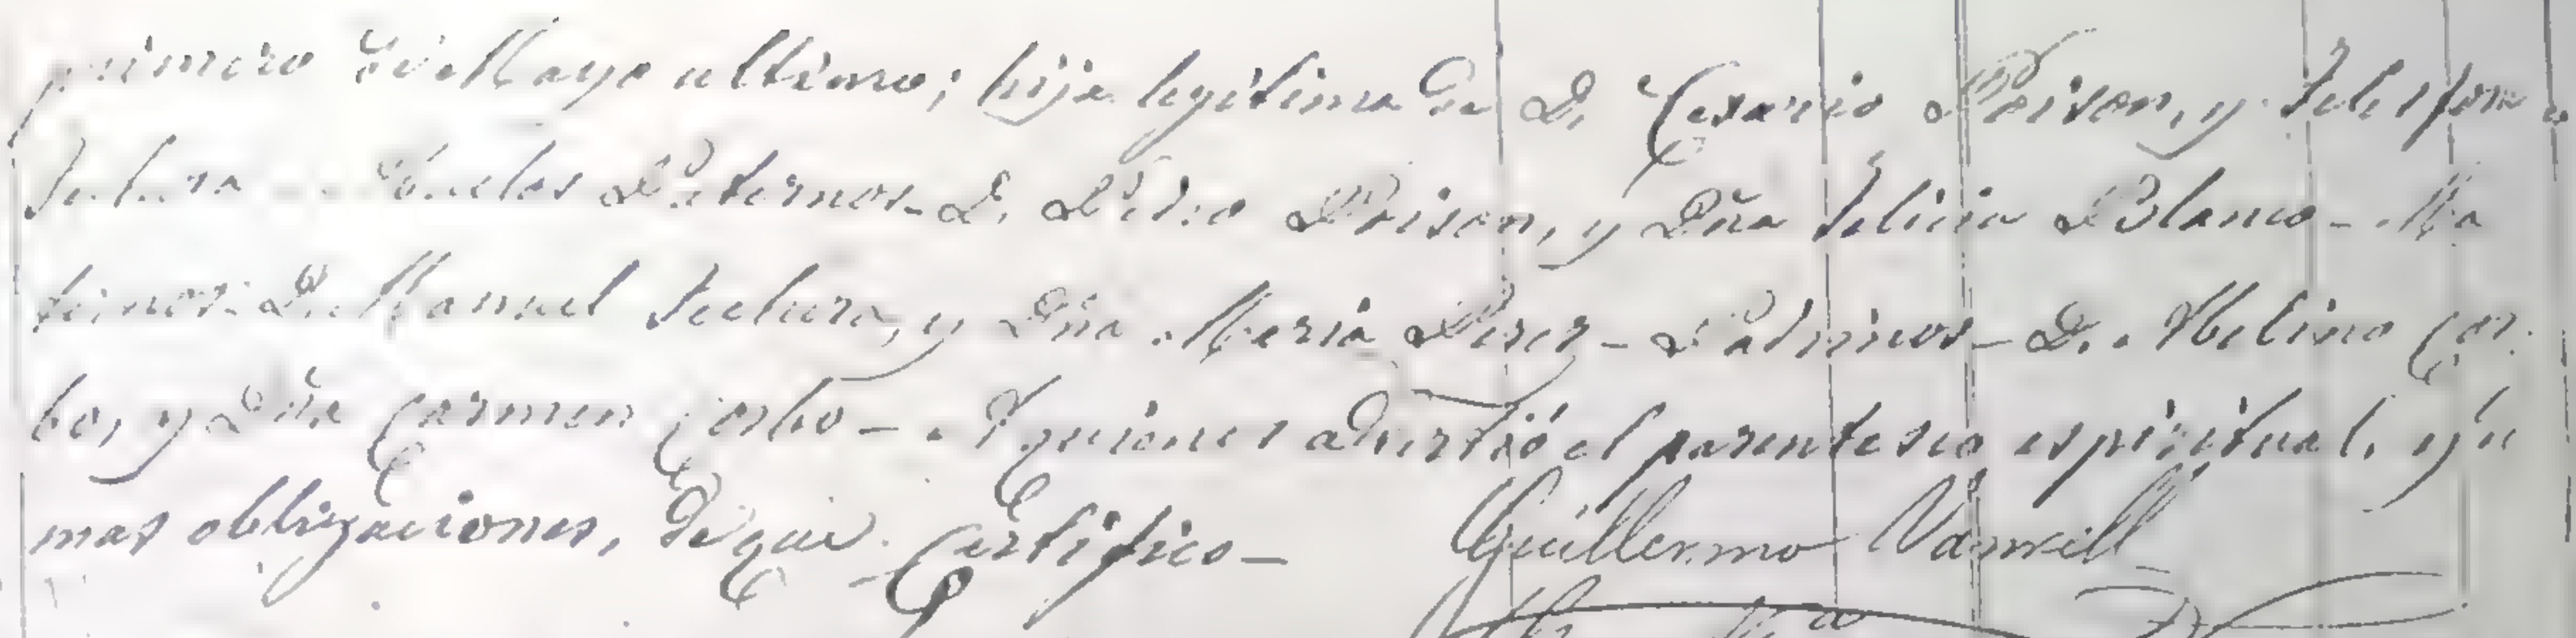 primero de Mayo ultimo; hija legitima de D. Cesario Poison, y Telesfora
Abuelos Paternos - D. Pedro Poison, y Dña Felicia Blanco - Ma
ternos - D. Manuel Techera, y Dña Maria Perez - Padrinos - D. Abelino Cor
bo, y Dña Carmen Corbo - A quienes advertió el parentesco espiritual, y de
mas obligaciones, de que Certifico -
Guillermo